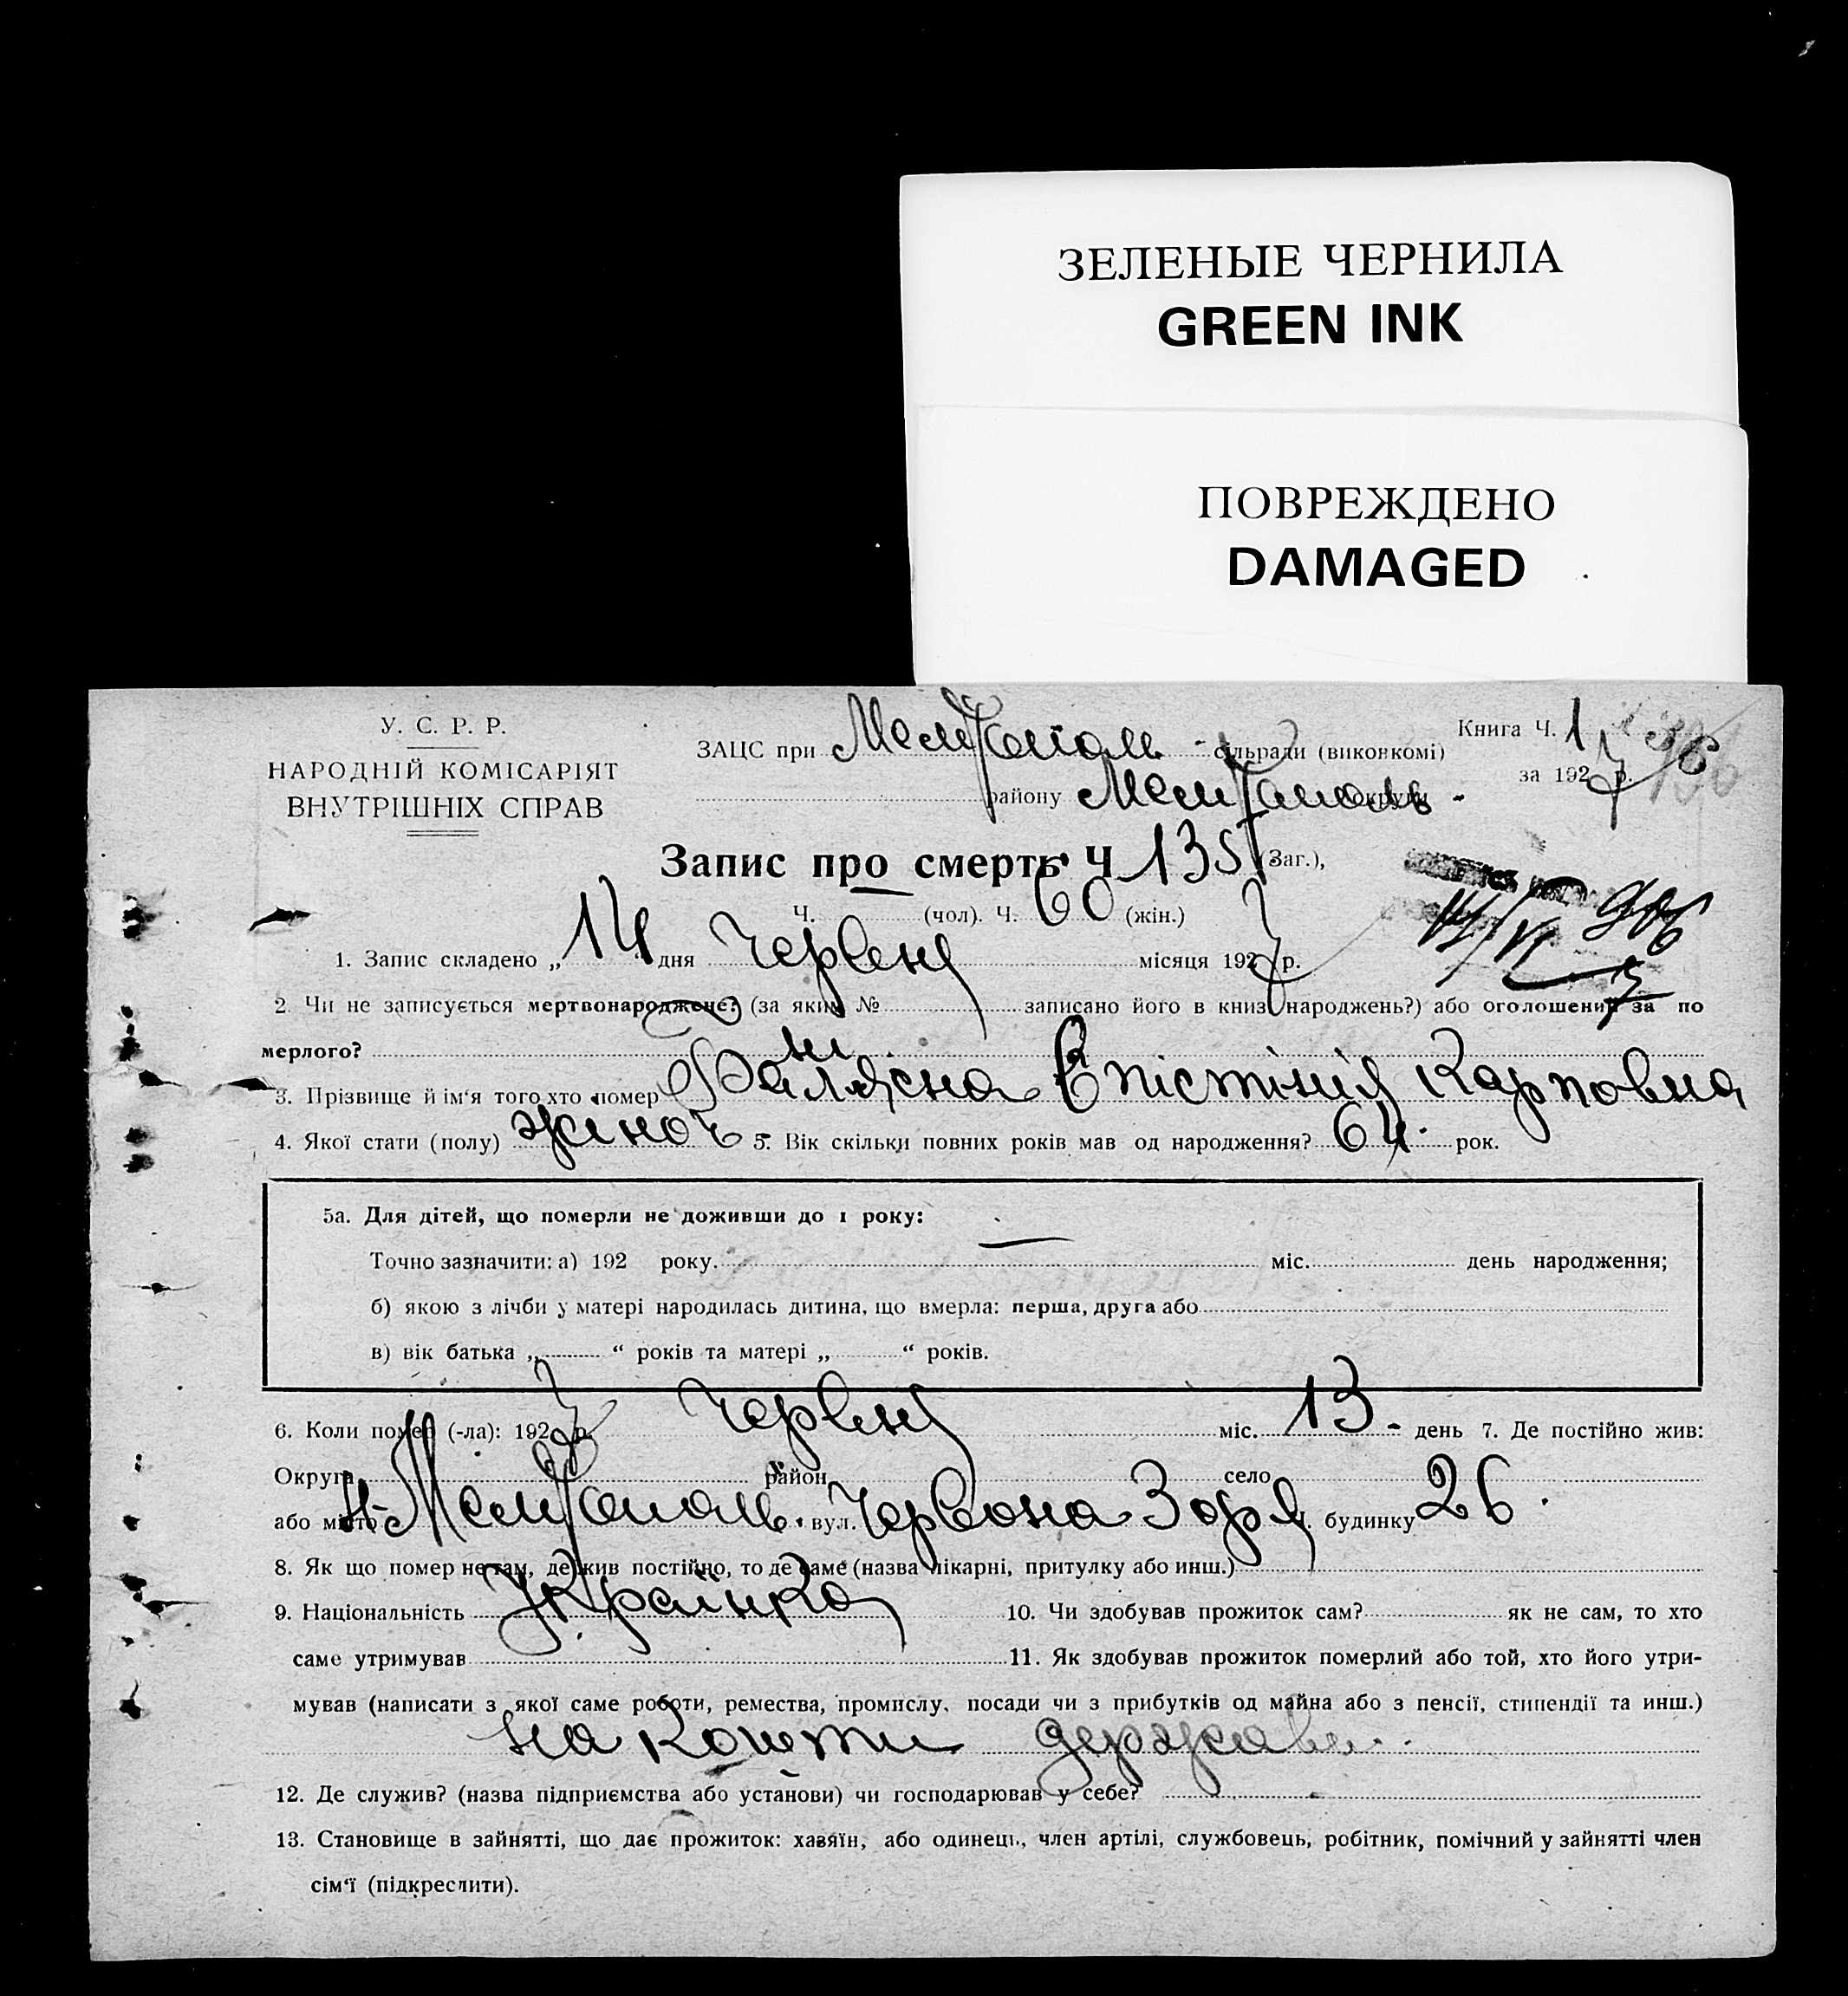 ЗЕЛЕНЫЕ ЧЕРНИЛА
GREEN INK
ПОВРЕЖДЕНО
DAMAGED
У. С. Р. Р.
НАРОДНІЙ КОМІСАРІЯТ
ВНУТРІШНІХ СПРАВ
ЗАЦС при Мелітополь сільради (виконкомі)
району Мелітополь округи
Книга Ч. 1
за 1927 р.
136
Запис про смерть Ч 135 (Заг.),
Ч. (чол). Ч. 60 (жін.)
1. Запис складено „ 14 дня Червеня місяця 1927 р.
2. Чи не записується мертвонароджене? (за яким № записано його в книзі народжень?) або оголошений за по
мерлого?
3. Прізвище й ім‘я того хто помер Єпістімія Карповна
4. Якої стати (полу) жіноч 5. Вік скільки повних років мав од народження? 64 рок.
5а. Для дітей, що померли не доживши до 1 року:
Точно зазначити: а) 192 року. міс. день народження;
б) якою з лічби у матері народилась дитина, що вмерла: перша, друга або
в) вік батька „ “ років та матері „ “ років.
6. Коли помер (-ла): 1927 р. Червеня міс. 13 день 7. Де постійно жив:
Округа район село
або місто М-Мелітополь вул. Червона Зоря Ч. будинку 26.
8. Як що помер не там, де жив постійно, то де саме (назва лікарні, притулку або инш.)
9. Національність Українка 10. Чи здобував прожиток сам? як не сам, то хто
саме утримував 11. Як здобував прожиток померлий або той, хто його утри-
мував (написати з якої саме роботи, ремества, промислу, посади чи з прибутків од майна або з пенсії, стипендії та инш.)
на кошти держави
12. Де служив? (назва підприємства або установи) чи господарював у себе?
13. Становище в зайнятті, що дає прожиток: хазяїн, або одинець, член артілі, службовець, робітник, помічний у зайнятті член
сім‘ї (підкреслити).